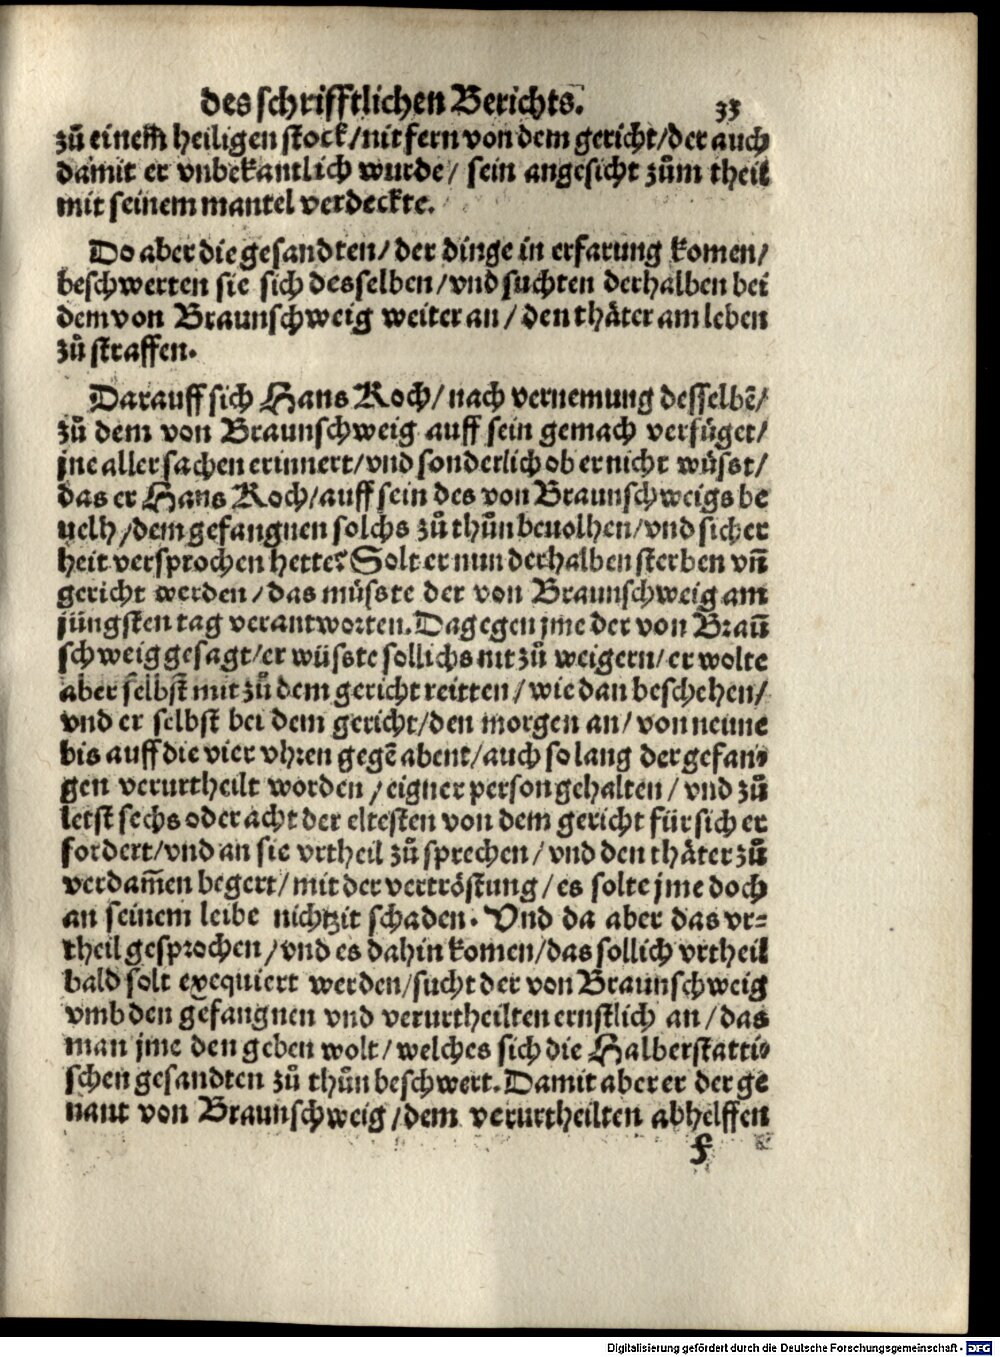 des schrifftlichen Berichts. 33
zů einem heiligen stock/nit fern von dem gericht/der auch
damit er vnbekantlich wurde/ sein angesicht zům theil
mit seinem mantel verdeckte.
Do aber die gesandten/der dinge in erfarung komen/
beschwerten sie sich desselben/vnd suchten derhalben bei
dem von Braunschweig weiter an/den thäter am leben
zů straffen.
Darauff sich Hans Koch/nach vernemung desselbē/
zů dem von Braunschweig auff sein gemach verfüget/
jne aller sachen erinnert/vnd sonderlich ob er nicht wüsst/
das er Hans Koch/auff sein des von Braunschweigs be
uelh/dem gefangnen solchs zů thůn beuolhen/vnd sicher
heit versprochen hette? Solt er nun derhalben sterben vn̄
gericht werden/das müsste der von Braunschweig am
jüngsten tag verantworten. Dagegen jme der von Braū
schweig gesagt/er wüsste sollichs nit zů weigern/er wolte
aber selbst mit zů dem gericht reitten/wie dan beschehen/
vnd er selbst bei dem gericht/den morgen an/von neune
bis auff die vier vhren gegē abent/auch so lang der gefan-
gen verurtheilt worden/eigner person gehalten/vnd zů
letst sechs oder acht der eltesten von dem gericht für sich er
fordert/vnd an sie vrtheil zů sprechen/vnd den thäter zů
verdam̄en begert/mit der vertröstung/es solte jme doch
an seinem leibe nichtzit schaden. Vnd da aber das vr-
theil gesprochen/vnd es dahin komen/das sollich vrtheil
bald solt exequiert werden/sucht der von Braunschweig
vmb den gefangnen vnd verurtheilten ernstlich an/das
man jme den geben wolt/welches sich die Halberstatti-
schen gesandten zů thůn beschwert. Damit aber er der ge
nant von Braunschweig/dem verurtheilten abhelffen
f
Digitalisierung gefördert durch die Deutsche Forschungsgemeinschaft - DFG